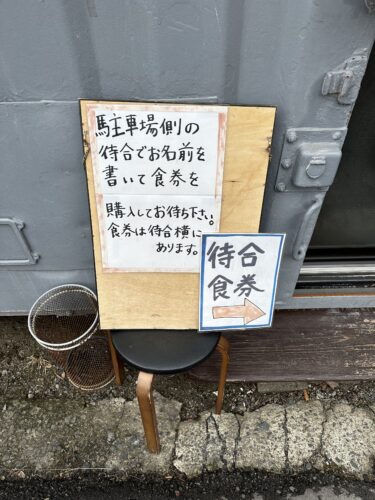 駐車場側の
待合でお名前を
書いて食券を
購入してお待ち下さい。
食券は待合横に
あります。
待合
食券